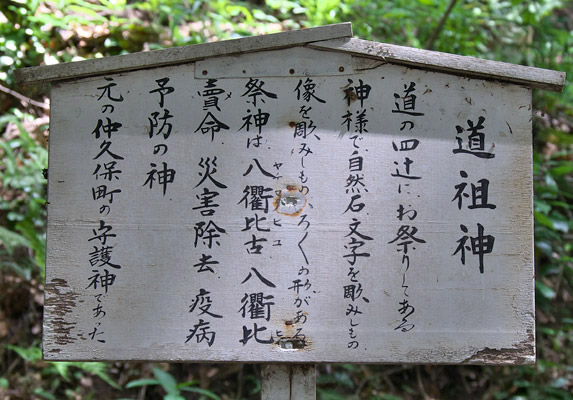 道祖神
道の四辻にお祭りしてある
神様で自然石文字を彫みしもの
像を彫みしもの、ろくの形がある
祭神は八衢比古八衢比
賣命 災害除去 疫病
予防の神
元の仲久保町の守護神であった